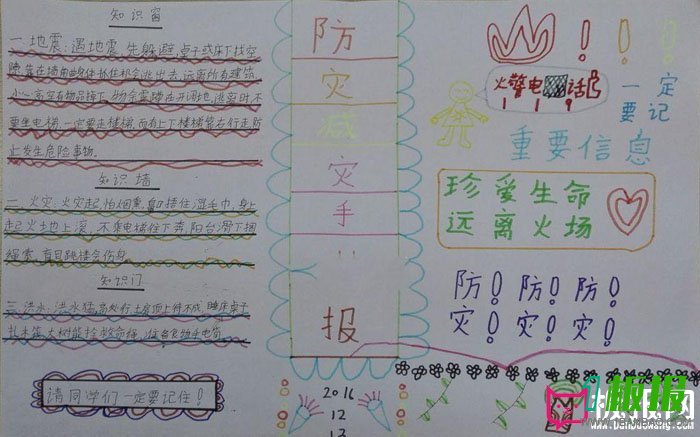 知识窗
一.地震:遇地震,先躲避,桌子或床下找空
隙,靠在墙角曲身体抓住机会逃出去,远离所有建筑,
小心高空有物品掉下,物余震蹲在开阔地,逃灾时不
要坐电梯,一定要走楼梯,而有上丁楼梯靠右行走防
止发生危险事物。
知识墙
二.火灾:火灾起,怕烟熏,鼻口捂住湿毛巾,身上
起火地上滚,不乘电梯往下奔,阳台滑下捆
绳索,盲目跳楼会伤身。
知识门
三.洪水:洪水猛,高处行,土房顶上待不成,睡床桌子
扎木筏,大树能拴救命绳,准备食物手电筒
请同学们一定要记住!
防
灾
减
灾
手
报
2016
12
13
!!!
火警电话
119
一定
要记
重要信息
珍爱生命
远离火场
防!防!防!
灾!灾!灾!
板报网